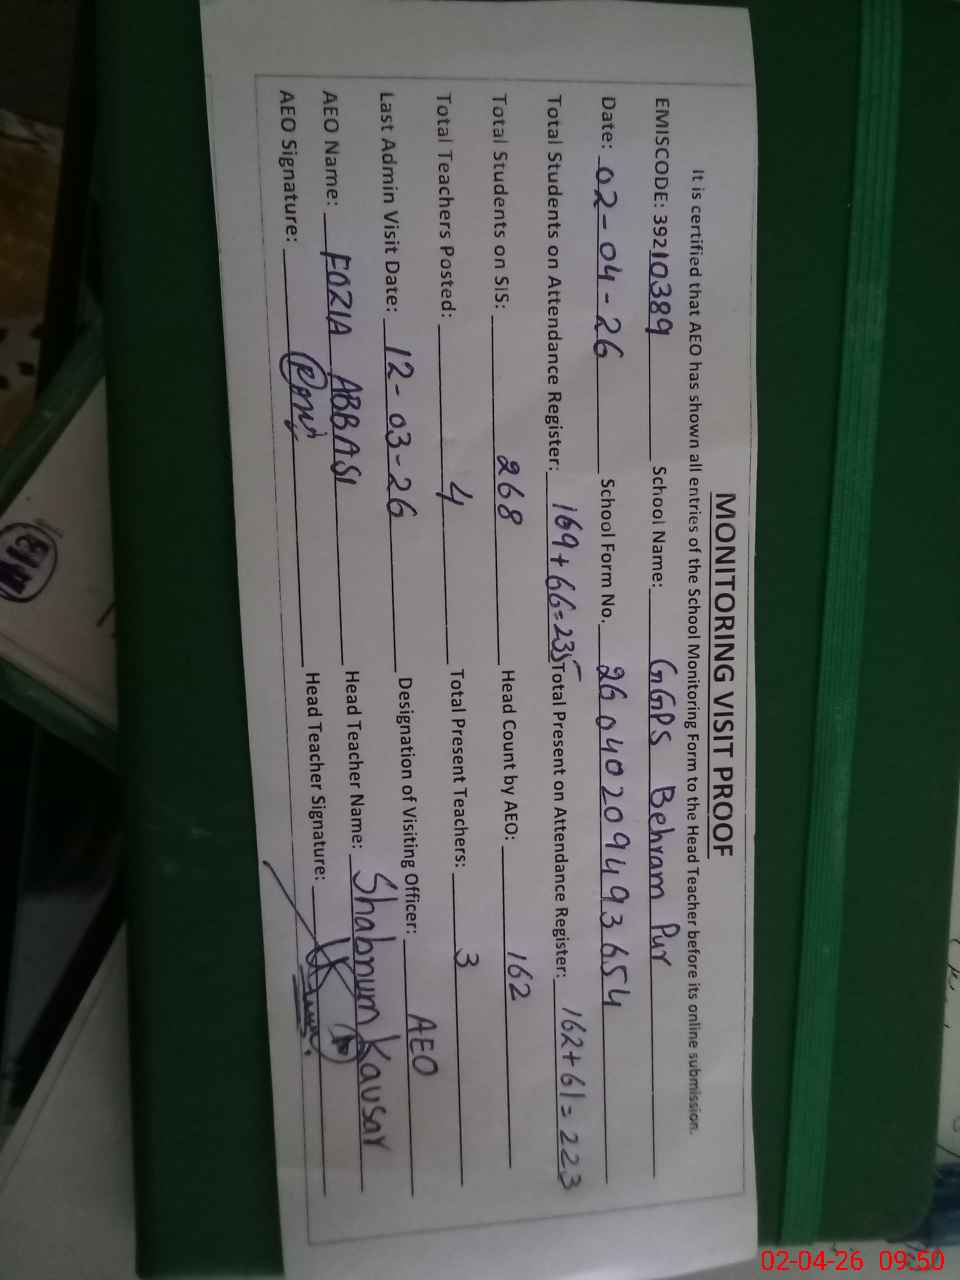 MONITORING VISIT PROOF
It is certified that AEO has shown all entries of the School Monitoring Form to the Head Teacher before its online submission.
EMISCODE: 39210389 School Name: GGPS Behram Pur
Date: 02-04-26 School Form No. 26040209493654
Total Students on Attendance Register: 169+66=235 Total Present on Attendance Register: 162+61=223
Total Students on SIS: 268 Head Count by AEO: 162
Total Teachers Posted: 4 Total Present Teachers: 3
Last Admin Visit Date: 12-03-26 Designation of Visiting Officer: AEO
AEO Name: FOZIA ABBASI Head Teacher Name: Shabnum Kausar
AEO Signature: Head Teacher Signature:
02-04-26 09:50